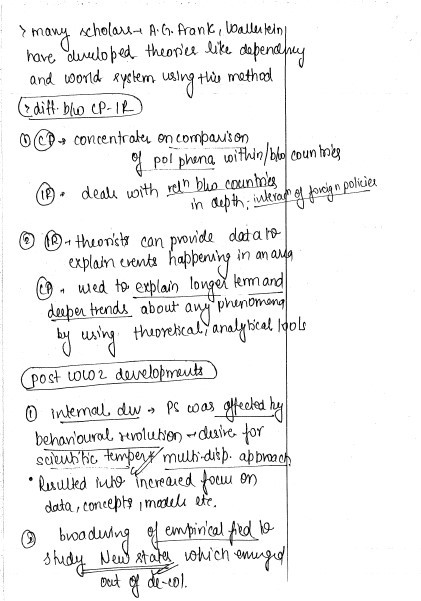 > many scholars → A.G. Frank, Wallerstein
have developed theories like dependency
and world system using this method
> diff. b/w CP-IR
① CP → concentrates on comparison
of pol phena within/b/w countries
IR • deals with relⁿ b/w countries
in depth; interacⁿ of foreign policies
② IR → theorists can provide data to
explain events happening in an area
CP • used to explain longer term and
deeper trends about any phenomena
by using theoretical, analytical tools
post WW2 developments
① internal dev → PS was affected by
behavioural revolution → desire for
scientific temper & multi-disp. approach
• Resulted into increased focus on
data, concepts, models etc.
② broadening of empirical field to
study New states which emerged
out of de-col.